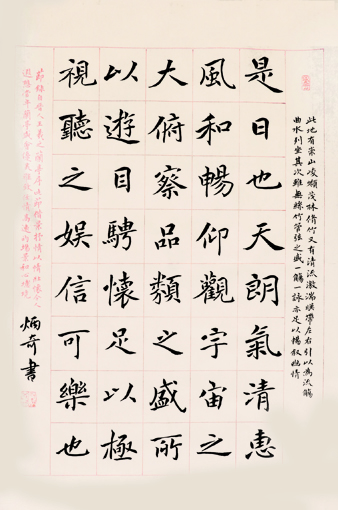 此地有崇山峻嶺茂林脩竹又有清流激湍暎帶左右引以為流觴
曲水列坐其次雖無絲竹管弦之盛一觴一詠亦足以暢敘幽情
是日也天朗氣清惠
風和暢仰觀宇宙之
大俯察品類之盛所
以遊目騁懷足以極
視聽之娛信可樂也
節錄自晉人王羲之蘭亭序
炳奇書